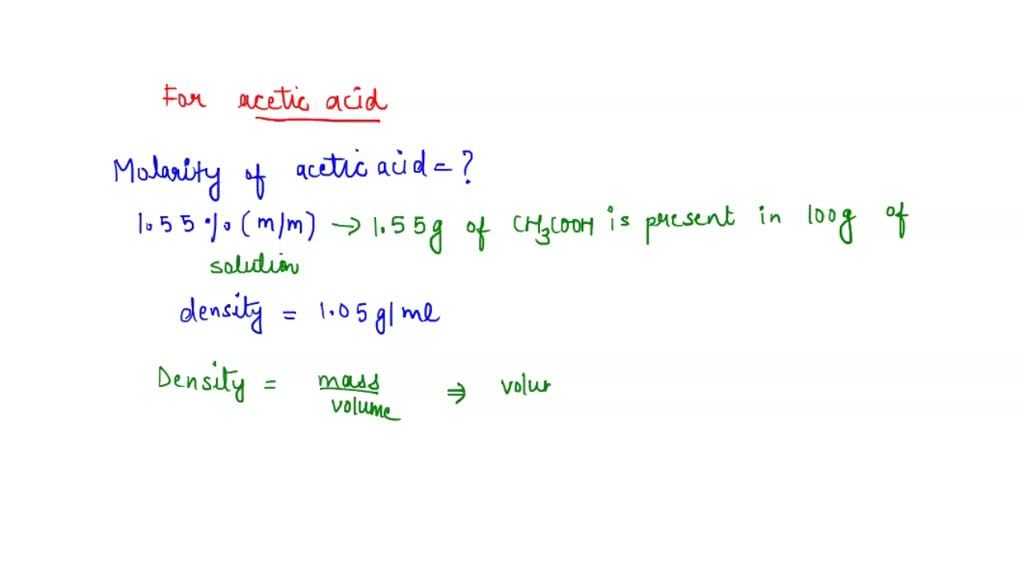 For acetic acid
Molarity of acetic acid = ?
1.55 % (m/m) → 1.55g of CH₃COOH is present in 100g of
solution
density = 1.05 g/ml
Density = mass/volume ⇒ volur